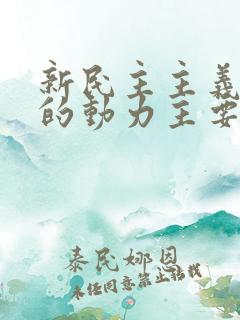 新民主主義
的動力主要
泰民娜恩
未经同意禁止转载